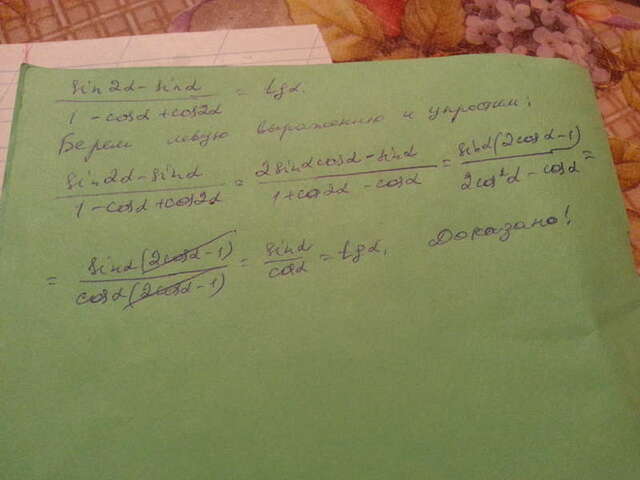 sin2α - sinα / 1 - cosα + cos2α = tgα.
Берем левую выражению и упростим:
sin2α - sinα / 1 - cosα + cos2α = 2sinαcosα - sinα / 1 + cos2α - cosα = sinα(2cosα - 1) / 2cos²α - cosα =
= sinα(2cosα - 1) / cosα(2cosα - 1) = sinα / cosα = tgα. Доказано!